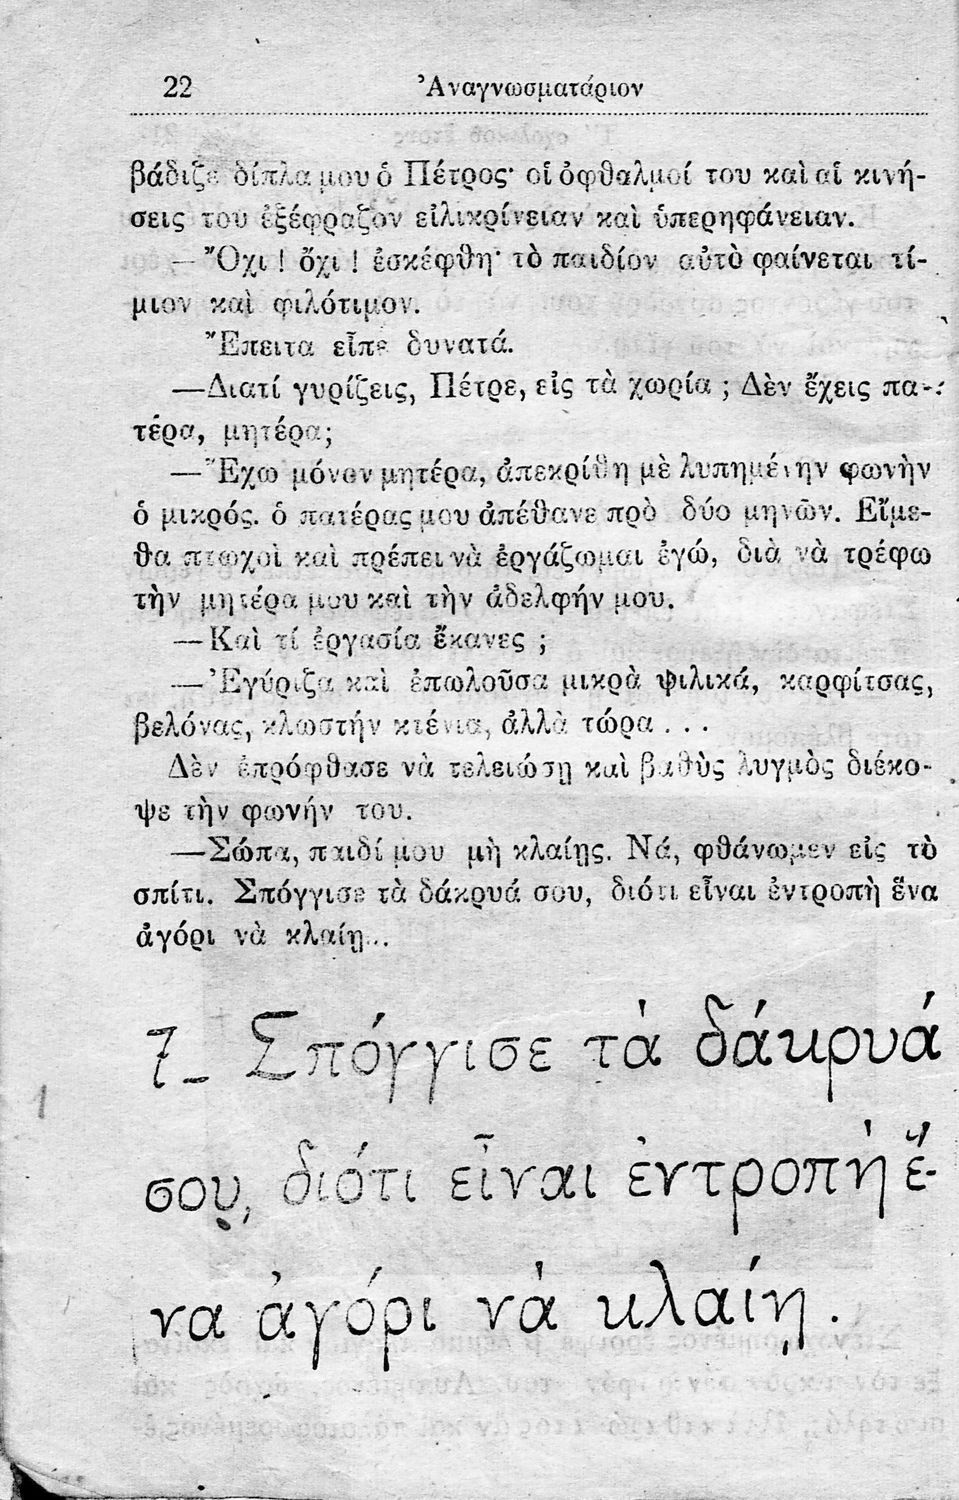 22 Ἀναγνωσματάριον
βάδιζε δίπλα μου ὁ Πέτρος· οἱ ὀφθαλμοί του καὶ αἱ κινή-
σεις του ἐξέφραζον εἰλικρίνειαν καὶ ὑπερηφάνειαν.
— Ὄχι! ὄχι! ἐσκέφθη· τὸ παιδίον αὐτὸ φαίνεται τί-
μιον καὶ φιλότιμον.
Ἔπειτα εἶπε δυνατά.
—Διατί γυρίζεις, Πέτρε, εἰς τὰ χωρία; Δὲν ἔχεις πα-
τέρα, μητέρα;
—Ἔχω μόνον μητέρα, ἀπεκρίθη μὲ λυπημένην φωνὴν
ὁ μικρός. ὁ πατέρας μου ἀπέθανε πρὸ δύο μηνῶν. Εἴμε-
θα πτωχοὶ καὶ πρέπει νὰ ἐργάζωμαι ἐγώ, διὰ νὰ τρέφω
τὴν μητέρα μου καὶ τὴν ἀδελφήν μου.
—Καὶ τί ἐργασία ἔκανες;
—Ἐγύριζα καὶ ἐπωλοῦσα μικρὰ ψιλικά, καρφίτσας,
βελόνας, κλωστήν κτένια, ἀλλὰ τώρα . . .
Δὲν ἐπρόφθασε νὰ τελειώσῃ καὶ βαθὺς λυγμὸς διέκο-
ψε τὴν φωνήν του.
—Σώπα, παιδί μου μὴ κλαίῃς. Νά, φθάνωμεν εἰς τὸ
σπίτι. Σπόγγισε τὰ δάκρυά σου, διότι εἶναι ἐντροπὴ ἕνα
ἀγόρι νὰ κλαίῃ...
7_ Σπόγγισε τὰ δάκρυά
σου, διότι εἶναι ἐντροπὴ ἕ-
να ἀγόρι νὰ κλαίῃ.